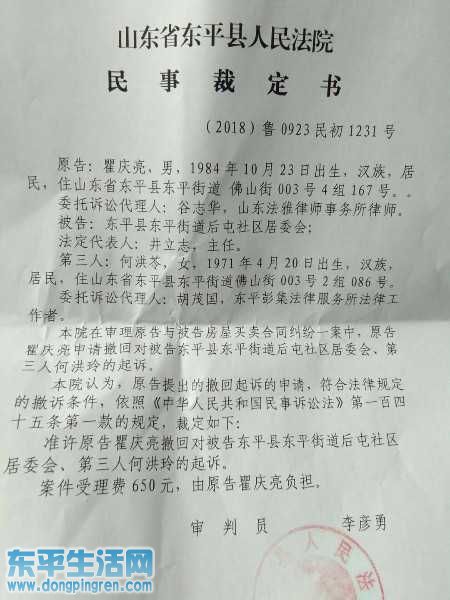 山东省东平县人民法院
民事裁定书
（2018）鲁0923民初1231号
原告：瞿庆亮，男，1984年10月23日出生，汉族，居
民，住山东省东平县东平街道 佛山街003号4组167号。。
委托诉讼代理人：谷志华，山东法雅律师事务所律师。
被告：东平县东平街道后屯社区居委会；
法定代表人：井立志，主任。
第三人：何洪苓，女，1971年4月20日出生，汉族，
居民，住山东省东平县东平街道佛山街003号2组086号。
委托诉讼代理人：胡茂国，东平彭集法律服务所法律工
作者。
本院在审理原告与被告房屋买卖合同纠纷一案中，原告
瞿庆亮申请撤回对被告东平县东平街道后屯社区居委会、第
三人何洪玲的起诉。
本院认为，原告提出的撤回起诉的申请，符合法律规定
的撤诉条件，依照《中华人民共和国民事诉讼法》第一百四
十五条第一款的规定，裁定如下：
准许原告瞿庆亮撤回对被告东平县东平街道后屯社区
居委会、第三人何洪玲的起诉。
案件受理费650元，由原告瞿庆亮负担。
审判员 李彦勇
人民法
东平生活网
www.dongpingren.com